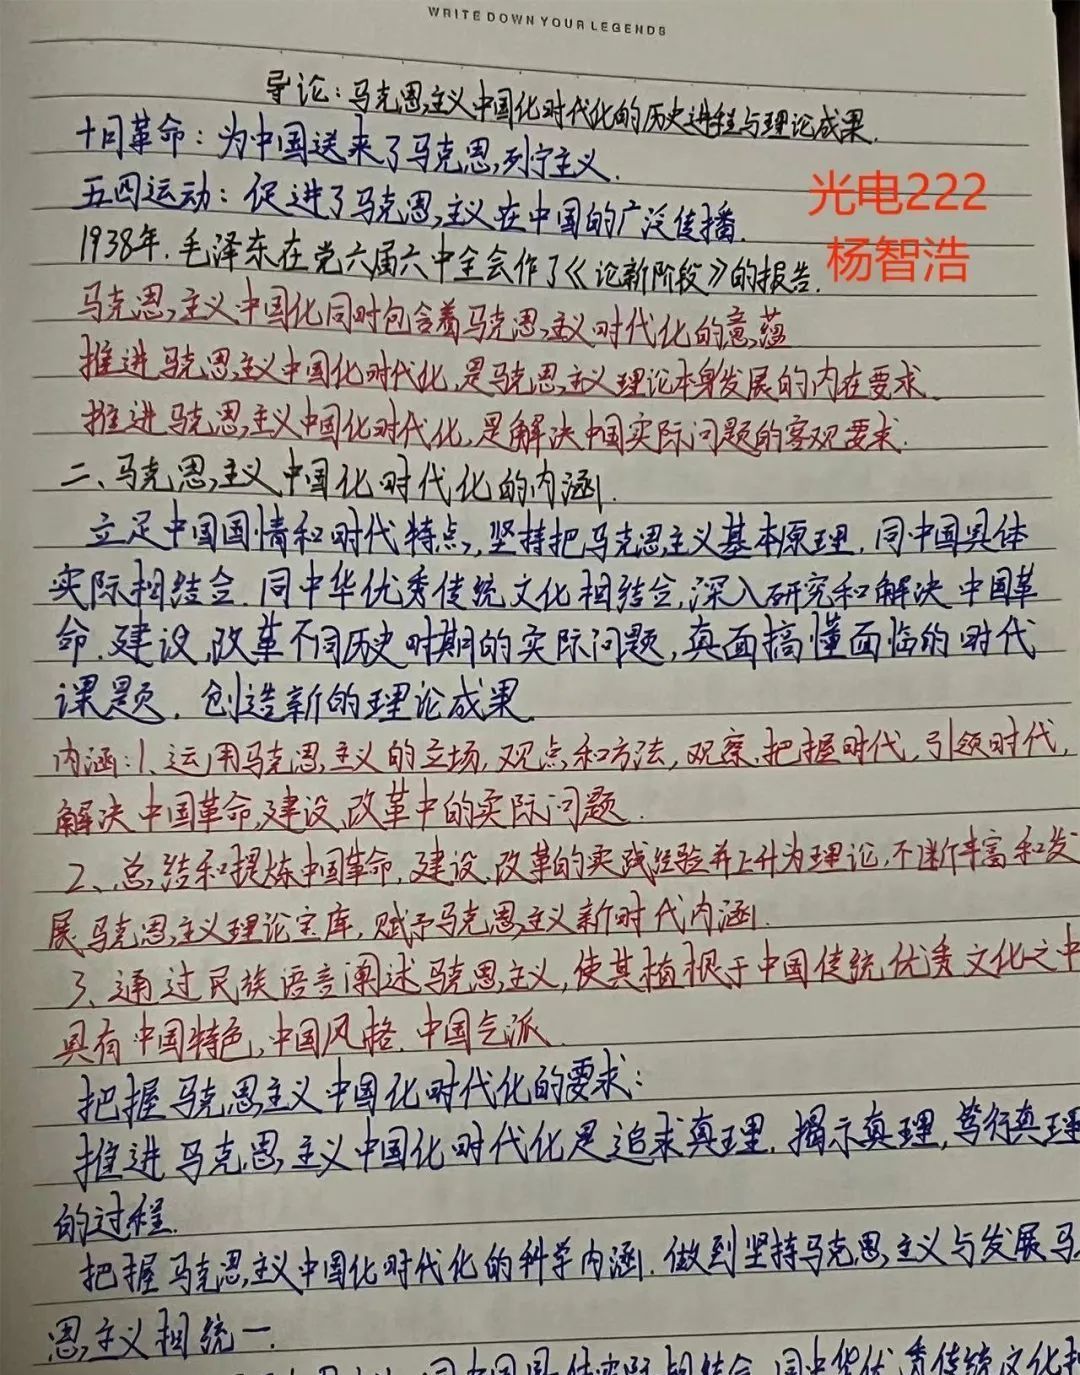 WRITE DOWN YOUR LEGENDS
导论：马克思主义中国化时代化的历史进程与理论成果.
十月革命：为中国送来了马克思列宁主义.
五四运动：促进了马克思主义在中国的广泛传播.
光电222
1938年.毛泽东在党六届六中全会作了《论新阶段》的报告.
杨智浩
马克思主义中国化同时包含着马克思主义时代化的意蕴
推进马克思主义中国化时代化,是马克思主义理论本身发展的内在要求.
推进马克思主义中国化时代化,是解决中国实际问题的客观要求.
二、马克思主义中国化时代化的内涵.
立足中国国情和时代特点,坚持把马克思主义基本原理.同中国具体
实际相结合.同中华优秀传统文化相结合,深入研究和解决中国革
命.建设.改革不同历史时期的实际问题,真面搞懂面临的时代
课题.创造新的理论成果.
内涵:1、运用马克思主义的立场,观点和方法,观察.把握时代,引领时代,
解决中国革命,建设,改革中的实际问题.
2、总结和提炼中国革命,建设.改革的实践经验并上升为理论,不断丰富和发
展马克思主义理论宝库,赋予马克思主义新时代内涵.
3、通过民族语言阐述马克思主义,使其植根于中国传统优秀文化之中
具有中国特色,中国风格.中国气派.
把握马克思主义中国化时代化的要求：
推进马克思主义中国化时代化是追求真理.揭示真理,笃行真理
的过程.
把握马克思主义中国化时代化的科学内涵.做到坚持马克思主义与发展马
思主义相统一.
同中国具体实际相结合.同中华优秀传统文化相